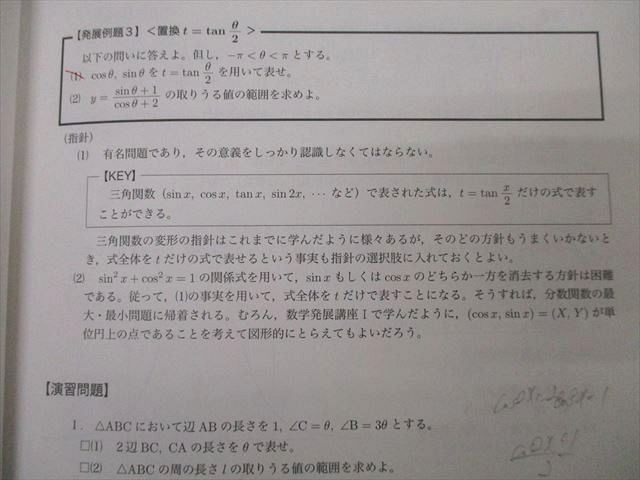 【発展例題3】<置換 t = tan θ/2 >
以下の問いに答えよ。但し，−π < θ < π とする。
(1) cos θ, sin θ を t = tan θ/2 を用いて表せ。
(2) y = (sin θ + 1)/(cos θ + 2) の取りうる値の範囲を求めよ。
(指針)
(1) 有名問題であり，その意義をしっかり認識しなくてはならない。
【KEY】
三角関数（sin x, cos x, tan x, sin 2x, ⋯ など）で表された式は，t = tan x/2 だけの式で表す
ことができる。
三角関数の変形の指針はこれまでに学んだように様々あるが，そのどの方針もうまくいかないと
き，式全体を t だけの式で表せるという事実も指針の選択肢に入れておくとよい。
(2) sin² x + cos² x = 1 の関係式を用いて，sin x もしくは cos x のどちらか一方を消去する方針は困難
である。従って，(1)の事実を用いて，式全体を t だけで表すことになる。そうすれば，分数関数の最
大・最小問題に帰着される。むろん，数学発展講座Ⅰで学んだように，(cos x, sin x) = (X, Y) が単
位円上の点であることを考えて図形的にとらえてもよいだろう。
【演習問題】
1. △ABC において辺 AB の長さを 1, ∠C = θ, ∠B = 3θ とする。
□(1) 2辺 BC, CA の長さを θ で表せ。
□(2) △ABC の周の長さ l の取りうる値の範囲を求めよ。